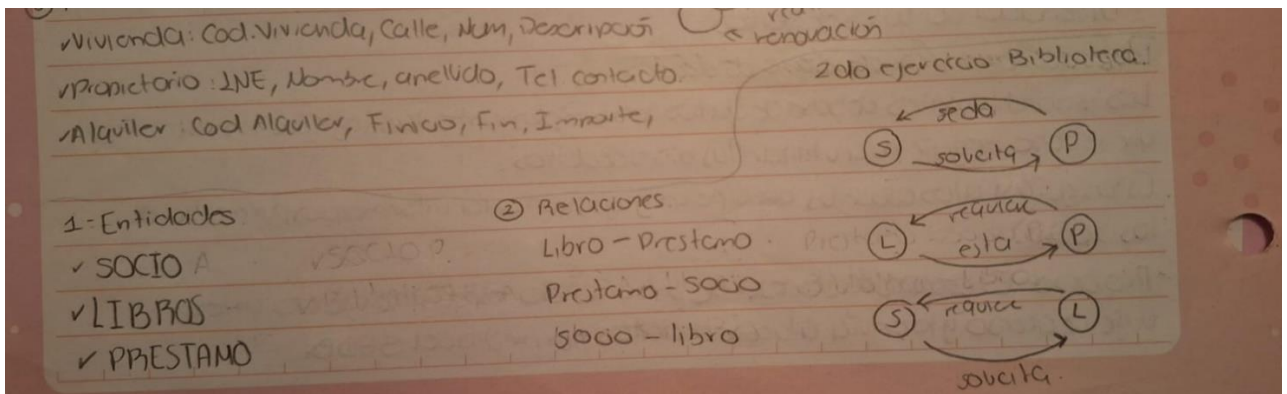 ✓Vivienda: Cod.Vivienda, Calle, Num, Descripción
< renovación
✓Propietario: INE, Nombre, apellido, Tel contacto.
✓Alquiler: Cod Alquiler, Finicio, Fin, Importe,
2do ejercicio Biblioteca.
se da
S solicita P
1-Entidades
✓ SOCIO
✓ LIBROS
✓ PRESTAMO
② Relaciones
Libro-Prestamo.
Prestamo-Socio
Socio-libro
requiere
L esta P
S requiere L
solicita.